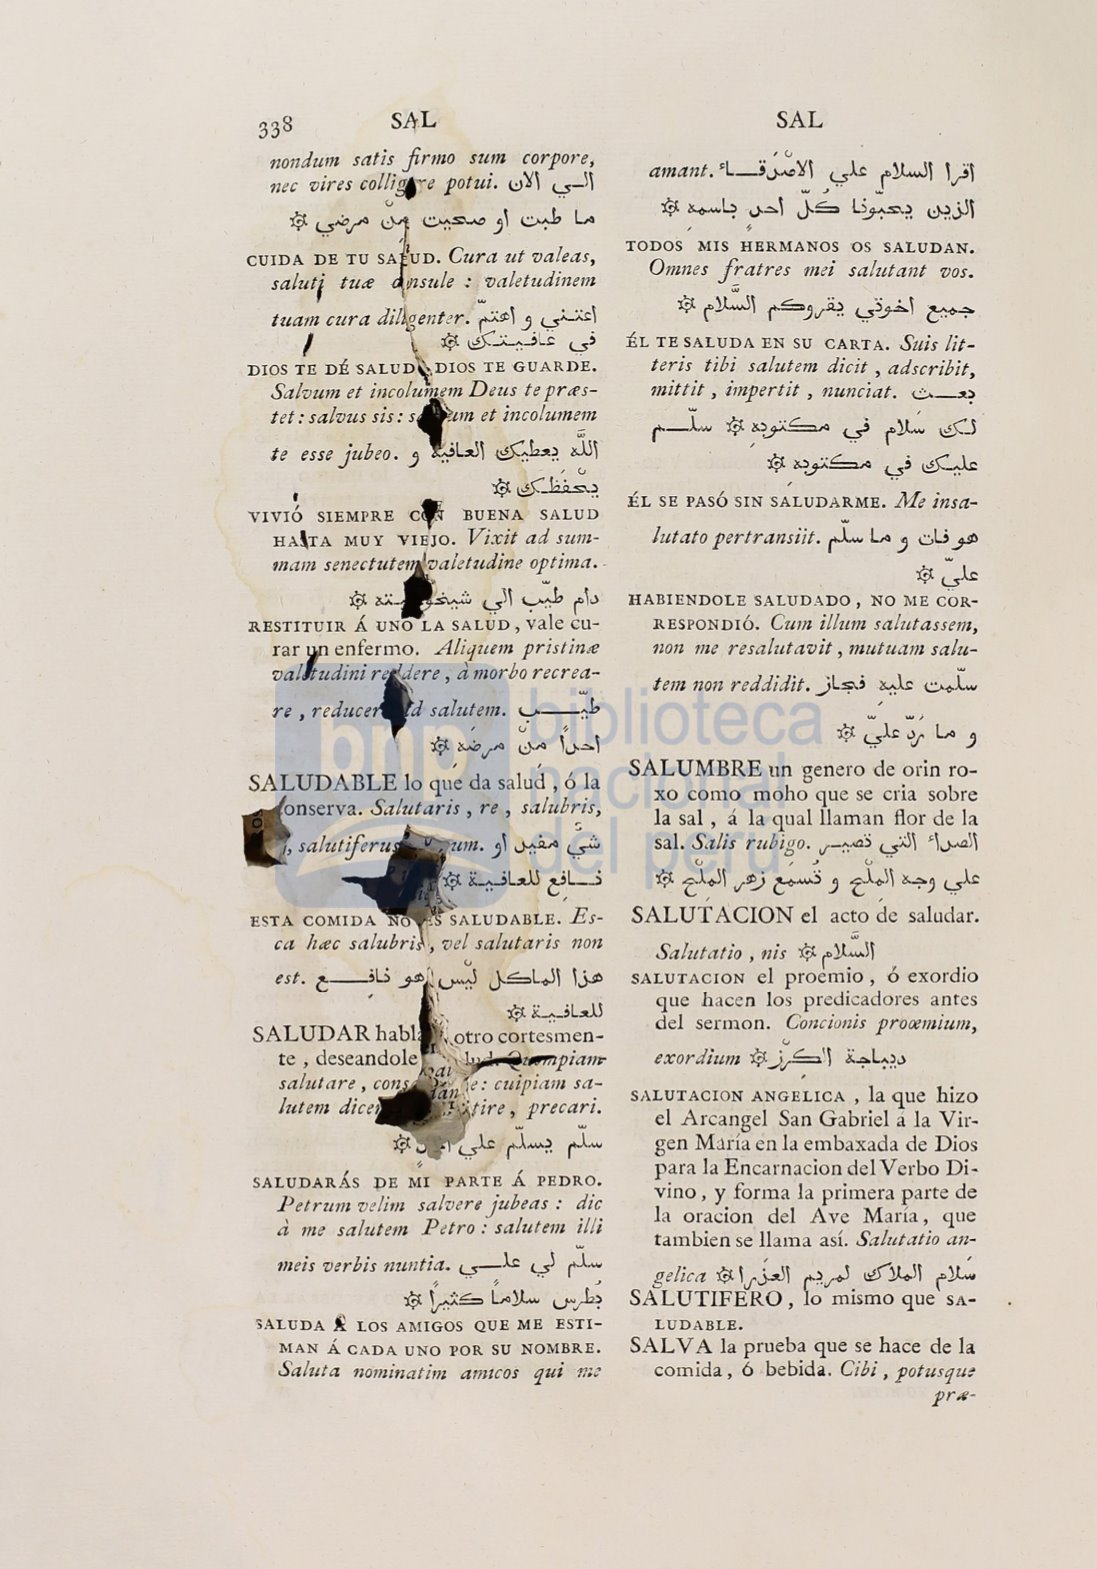 338 SAL SAL
nondum satis firmo sum corpore,
nec vires colligere potui. الـي الان
ما طبت او صحيت من مرضي ۞
CUIDA DE TU SALUD. Cura ut valeas,
saluti tuæ consule : valetudinem
tuam cura diligenter. اعتـنـي و اهتمّ
في عـافـيـتـك ۞
DIOS TE DÉ SALUD, DIOS TE GUARDE.
Salvum et incolumem Deus te præs-
tet : salvus sis : salvum et incolumem
te esse jubeo. اللَّه يعطيك العـافية و
يحْفَظـك ۞
VIVIÓ SIEMPRE CON BUENA SALUD
HASTA MUY VIEJO. Vixit ad sum-
mam senectutem valetudine optima.
دام طيّب الي ۞
RESTITUIR Á UNO LA SALUD, vale cu-
rar un enfermo. Aliquem pristinæ
valetudini reddere, à morbo recrea-
re, reducere ad salutem. طيّـــب
احداً منْ مرضه ۞
SALUDABLE lo que da salud, ó la
conserva. Salutaris, re, salubris,
salutiferus um. شيّ مفيد او
نـــافع للعـافـيـة ۞
ESTA COMIDA NO ES SALUDABLE. Es-
ca hæc salubris, vel salutaris non
est. هذا المـاكـل ليْس هو نـافـــع
للعـافـيـة ۞
SALUDAR otro cortesmen-
te, deseandole Quempiam
salutare, cuipiam sa-
lutem precari.
سلّم يسلّم علي ۞
SALUDARÁS DE MI PARTE Á PEDRO.
Petrum velim salvere jubeas : dic
à me salutem Petro : salutem illi
meis verbis nuntia. سلّم لي علـــي
بُطرس سلاماً كثيراً ۞
SALUDA Á LOS AMIGOS QUE ME ESTI-
MAN Á CADA UNO POR SU NOMBRE.
Saluta nominatim amicos qui me
amant. اقرا السلام علي الاصْدقـــاء
الذين يحبّونا كُلّ احد باسمه ۞
TODOS MIS HERMANOS OS SALUDAN.
Omnes fratres mei salutant vos.
جميع اخوتي يقروكم السَّلام ۞
ÉL TE SALUDA EN SU CARTA. Suis lit-
teris tibi salutem dicit, adscribit,
mittit, impertit, nunciat. بعـــث
لـك سَلام في مكتوبه ۞ سلّـــم
عليـك في مكتوبه ۞
ÉL SE PASÓ SIN SALUDARME. Me insa-
lutato pertransiit. هو فات و ما سلّم
عليّ ۞
HABIENDOLE SALUDADO, NO ME COR-
RESPONDIÓ. Cum illum salutassem,
non me resalutavit, mutuam salu-
tem non reddidit. سلّمت عليه فجاز
و ما رَدّ عليّ ۞
SALUMBRE un genero de orin ro-
xo como moho que se cria sobre
la sal, á la qual llaman flor de la
sal. Salis rubigo. الصداء التي تصيـر
علي وجه الملْح و تُسمَع زهر الملْح ۞
SALUTACION el acto de saludar.
Salutatio, nis السَّلام ۞
SALUTACION el proemio, ó exordio
que hacen los predicadores antes
del sermon. Concionis proœmium,
exordium ديباجة الكرْز ۞
SALUTACION ANGELICA, la que hizo
el Arcangel San Gabriel á la Vir-
gen María en la embaxada de Dios
para la Encarnacion del Verbo Di-
vino, y forma la primera parte de
la oracion del Ave María, que
tambien se llama así. Salutatio an-
gelica سَلام الملاك لمريم العذرا ۞
SALUTIFERO, lo mismo que SA-
LUDABLE.
SALVA la prueba que se hace de la
comida, ó bebida. Cibi, potusque
præ-
bnp biblioteca
nacional
del perú